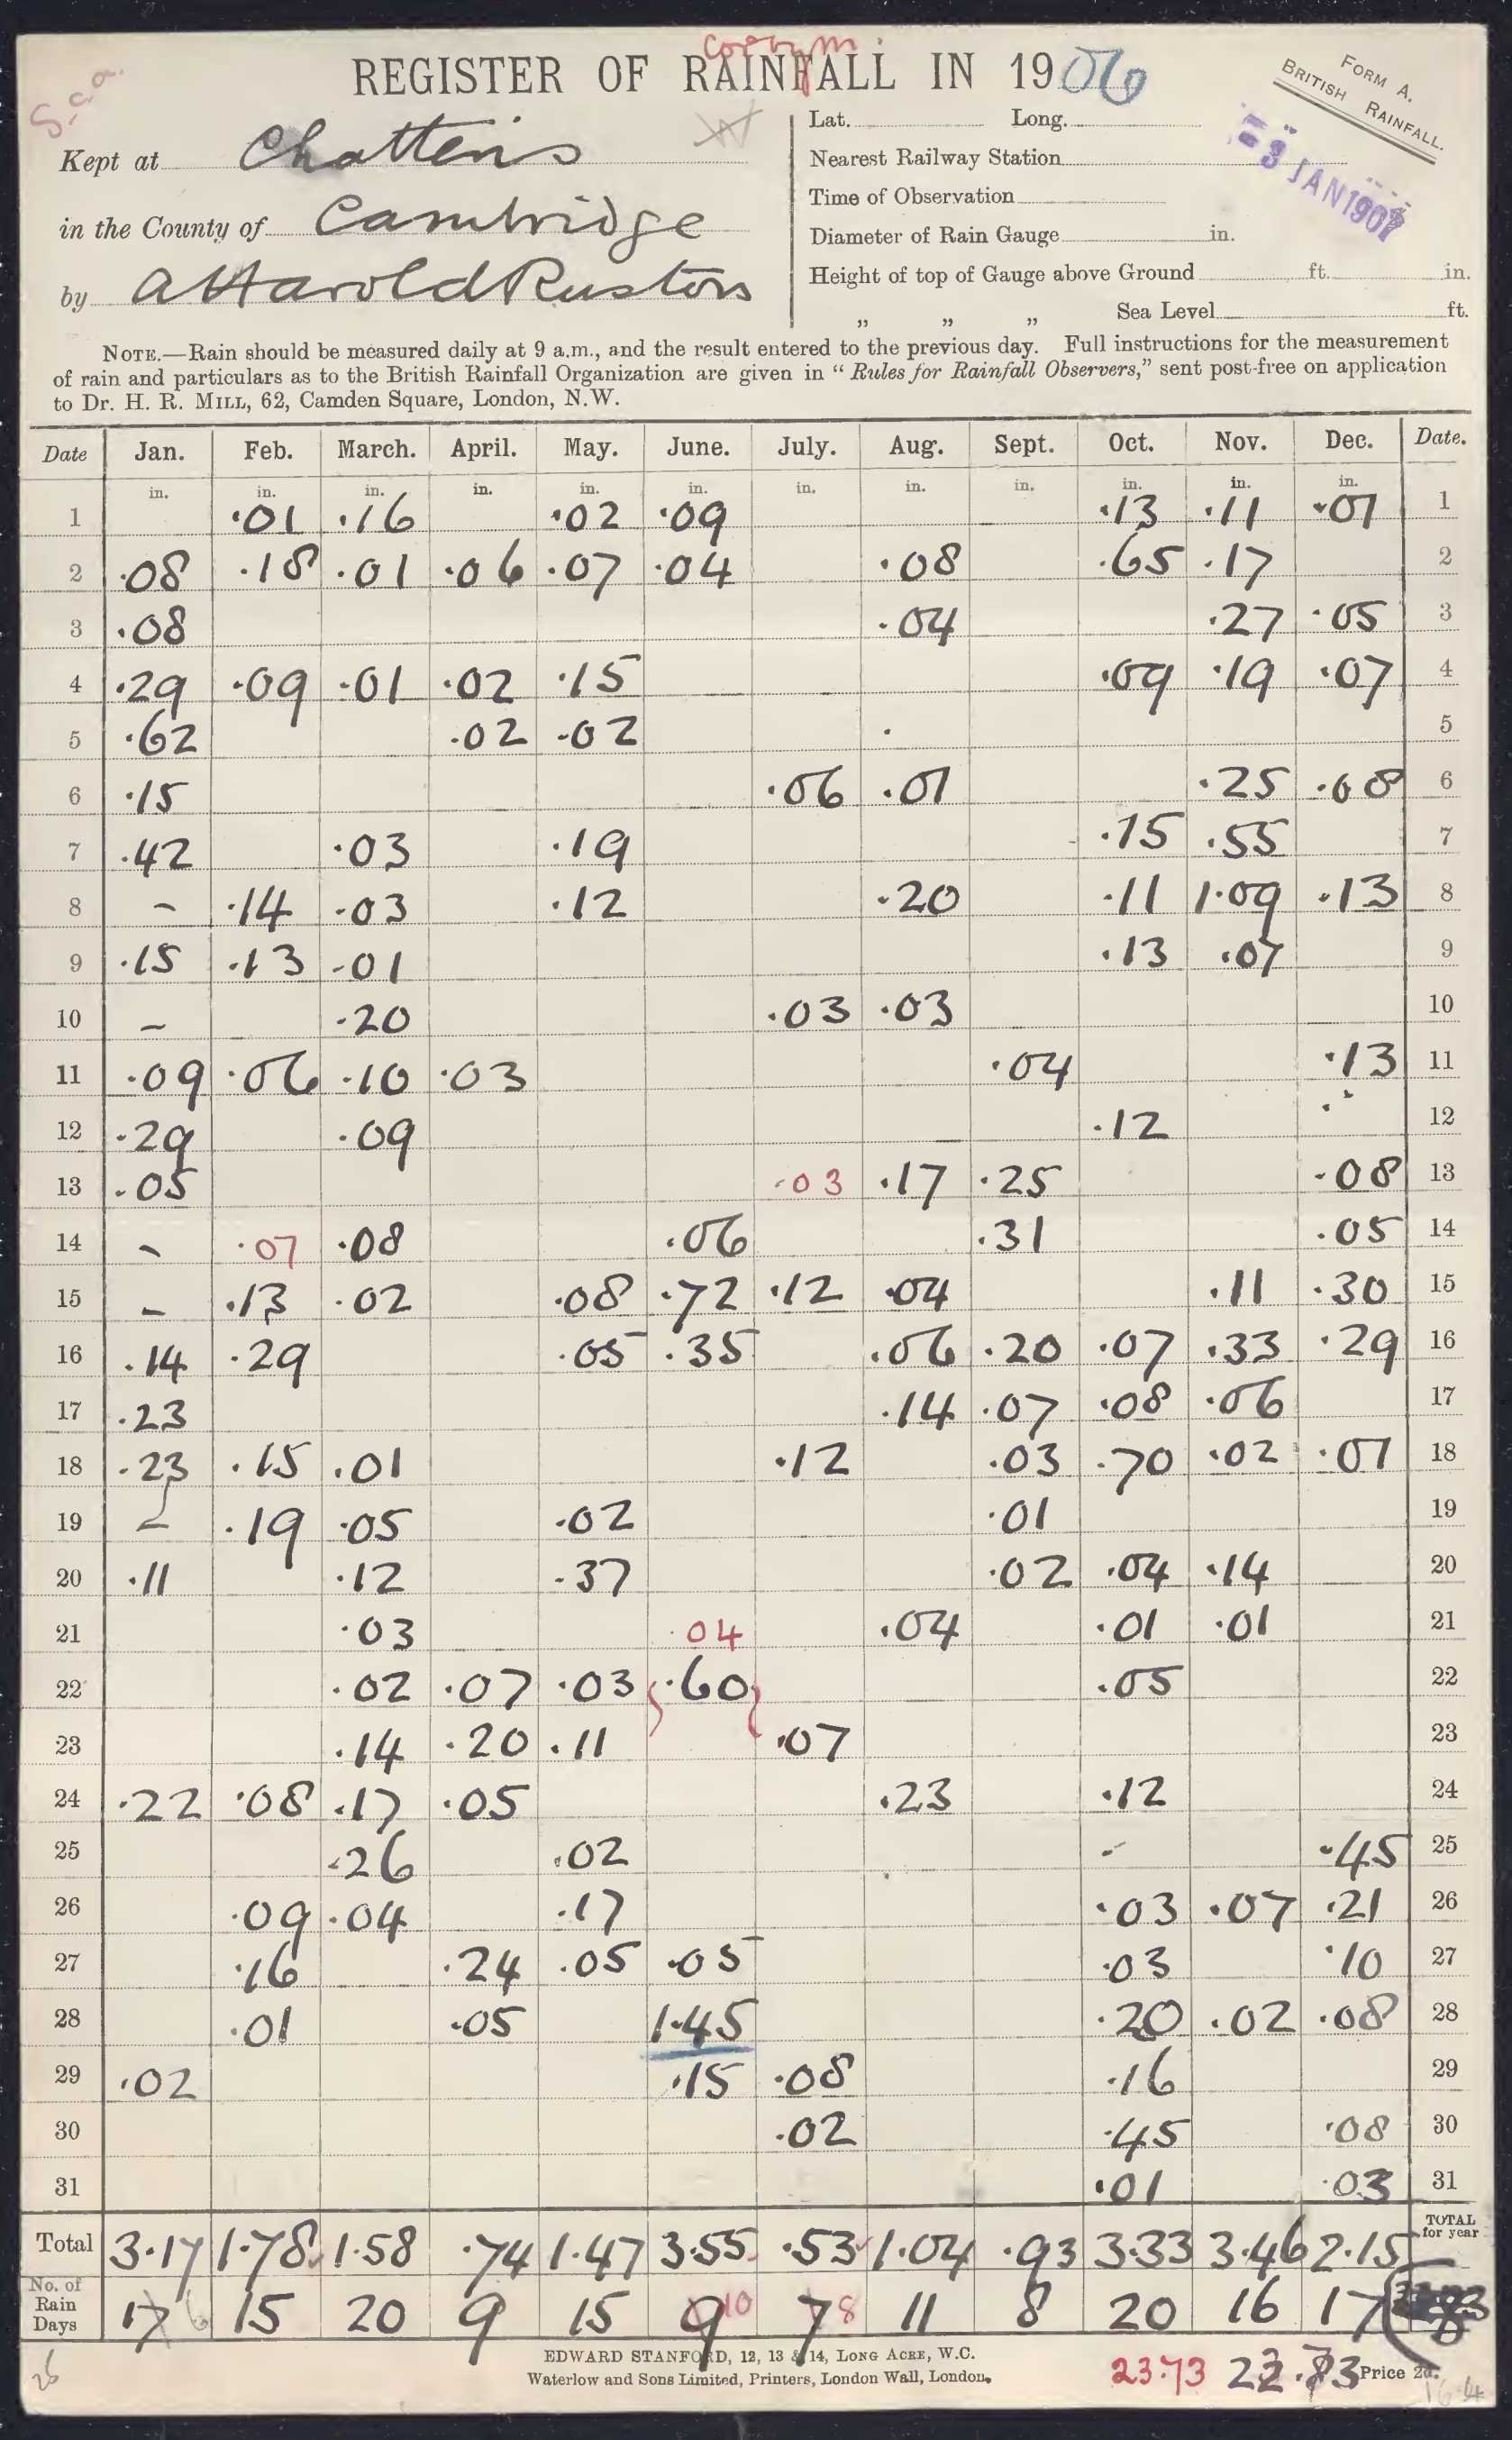 corym
REGISTER OF RAINFALL IN 1906
FORM A.
BRITISH RAINFALL.
Kept at Chatteris
in the County of Cambridge
by A Harold Ruston
Lat. Long.
Nearest Railway Station
Time of Observation
Diameter of Rain Gauge in.
Height of top of Gauge above Ground ft. in.
„ „ „ Sea Level ft.
3 JAN 1907
NOTE.—Rain should be measured daily at 9 a.m., and the result entered to the previous day. Full instructions for the measurement
of rain and particulars as to the British Rainfall Organization are given in “Rules for Rainfall Observers,” sent post-free on application
to Dr. H. R. MILL, 62, Camden Square, London, N.W.
Date Jan. Feb. March. April. May. June. July. Aug. Sept. Oct. Nov. Dec. Date.
in. in. in. in. in. in. in. in. in. in. in. in.
1 ·01 ·16 ·02 ·09 ·13 ·11 ·07 1
2 ·08 ·18 ·01 ·06 ·07 ·04 ·08 ·65 ·17 2
3 ·08 ·04 ·27 ·05 3
4 ·29 ·09 ·01 ·02 ·15 ·09 ·19 ·07 4
5 ·62 ·02 ·02 5
6 ·15 ·06 ·01 ·25 ·08 6
7 ·42 ·03 ·19 ·15 ·55 7
8 – ·14 ·03 ·12 ·20 ·11 1·09 ·13 8
9 ·15 ·13 ·01 ·13 ·07 9
10 – ·20 ·03 ·03 10
11 ·09 ·06 ·10 ·03 ·04 ·13 11
12 ·29 ·09 ·12 12
13 ·05 ·03 ·17 ·25 ·08 13
14 – ·07 ·08 ·06 ·31 ·05 14
15 – ·13 ·02 ·08 ·72 ·12 ·04 ·11 ·30 15
16 ·14 ·29 ·05 ·35 ·06 ·20 ·07 ·33 ·29 16
17 ·23 ·14 ·07 ·08 ·06 17
18 ·23 ·15 ·01 ·12 ·03 ·70 ·02 ·01 18
19 – ·19 ·05 ·02 ·01 19
20 ·11 ·12 ·37 ·02 ·04 ·14 20
21 ·03 ·04 ·04 ·01 ·01 21
22 ·02 ·07 ·03 ·60 ·05 22
23 ·14 ·20 ·11 ·07 23
24 ·22 ·08 ·17 ·05 ·23 ·12 24
25 ·26 ·02 – ·45 25
26 ·09 ·04 ·17 ·03 ·07 ·21 26
27 ·16 ·24 ·05 ·05 ·03 ·10 27
28 ·01 ·05 1·45 ·20 ·02 ·08 28
29 ·02 ·15 ·08 ·16 29
30 ·02 ·45 ·08 30
31 ·01 ·03 31
Total 3·17 1·78 1·58 ·74 1·47 3·55 ·53 1·04 ·93 3·33 3·46 2·15 TOTAL for year
No. of Rain Days 17 6 15 20 9 15 9 10 7 8 11 8 20 16 17
EDWARD STANFORD, 12, 13 & 14, LONG ACRE, W.C.
Waterlow and Sons Limited, Printers, London Wall, London.
23·73
Price 2d.